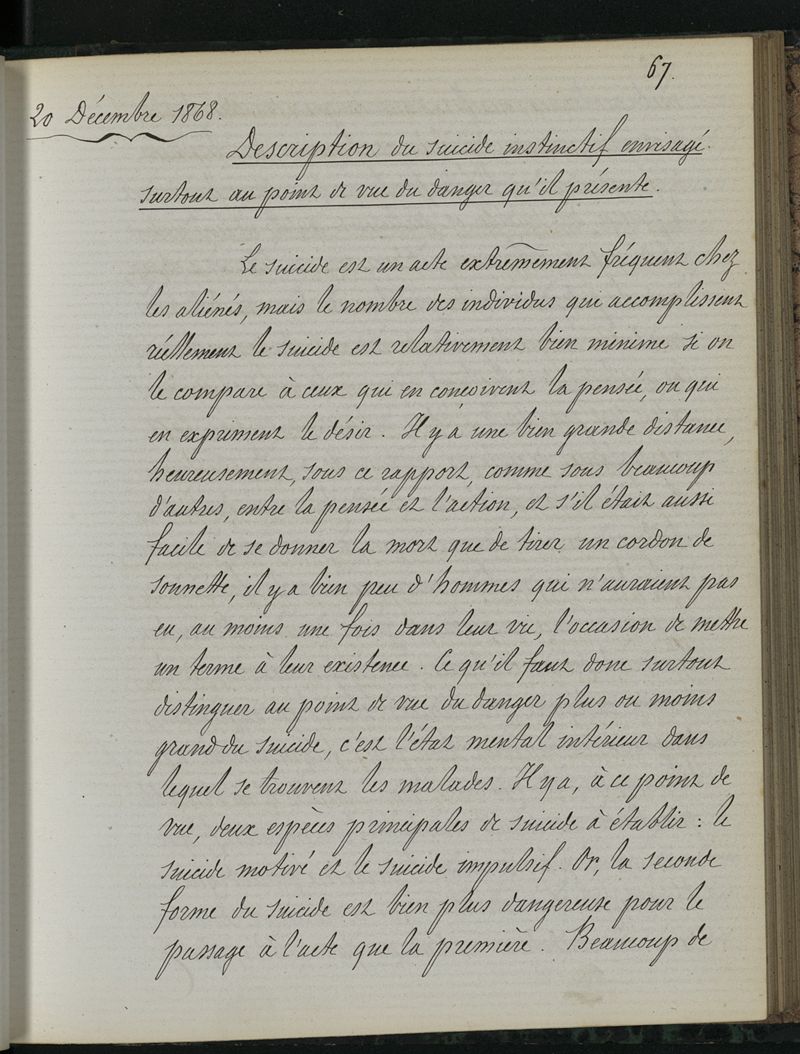 67.
20 Décembre 1868.
Description du suicide instinctif envisagé
surtout au point de vue du danger qu'il présente.
Le suicide est un acte extrêmement fréquent chez
les aliénés, mais le nombre des individus qui accomplissent
réellement le suicide est relativement bien minime si on
le compare à ceux qui en conçoivent la pensée, ou qui
en expriment le désir. Il y a une bien grande distance,
heureusement, sous ce rapport, comme sous beaucoup
d'autres, entre la pensée et l'action, et s'il était aussi
facile de se donner la mort que de tirer un cordon de
sonnette, il y a bien peu d'hommes qui n'auraient pas
eu, au moins une fois dans leur vie, l'occasion de mettre
un terme à leur existence. Ce qu'il faut donc surtout
distinguer au point de vue du danger plus ou moins
grand du suicide, c'est l'état mental intérieur dans
lequel se trouvent les malades. Il y a, à ce point de
vue, deux espèces principales de suicide à établir : le
suicide motivé et le suicide impulsif. Or, la seconde
forme du suicide est bien plus dangereuse pour le
passage à l'acte que la première. Beaucoup de